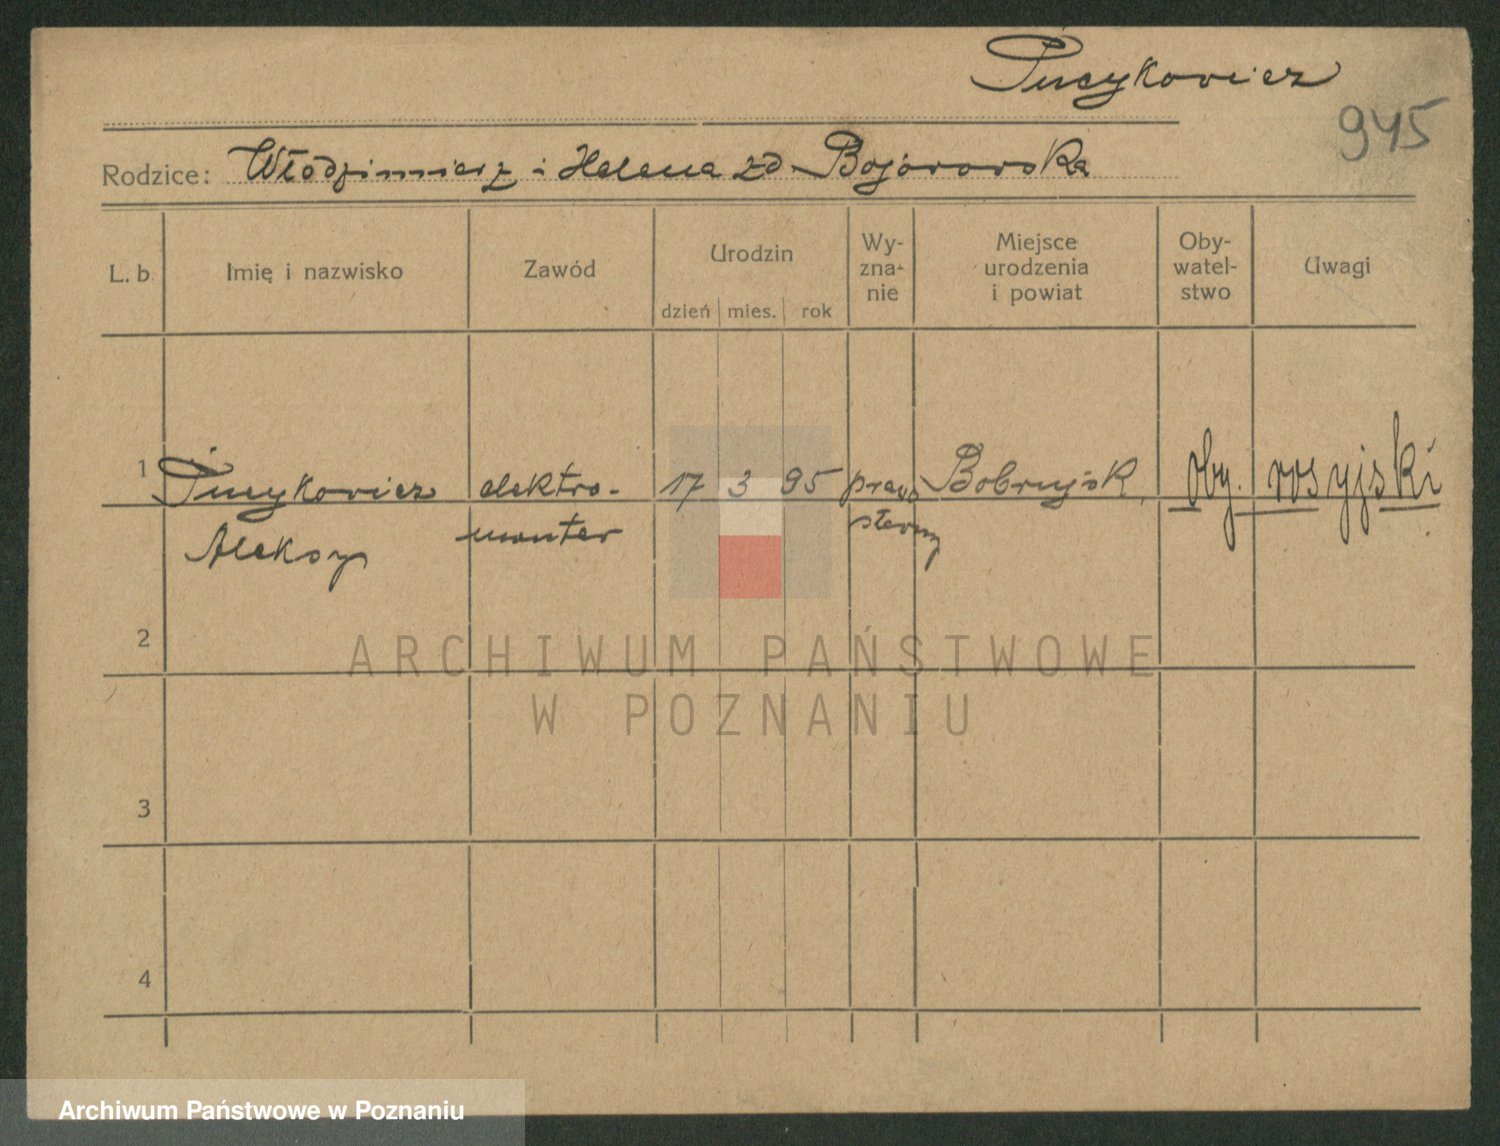 Pucykowicz
945
Rodzice: Włodzimierz i Helena zd. Bojarowska
L. b.
Imię i nazwisko
Zawód
Urodzin
dzień
mies.
rok
Wy-
zna-
nie
Miejsce
urodzenia
i powiat
Oby-
watel-
stwo
Uwagi
1
Pucykowicz
Aleksy
elektro-
monter
17
3
95
prawo
sławny
Bobrujsk
oby. rosyjski
2
3
4
ARCHIWUM PAŃSTWOWE
W POZNANIU
Archiwum Państwowe w Poznaniu